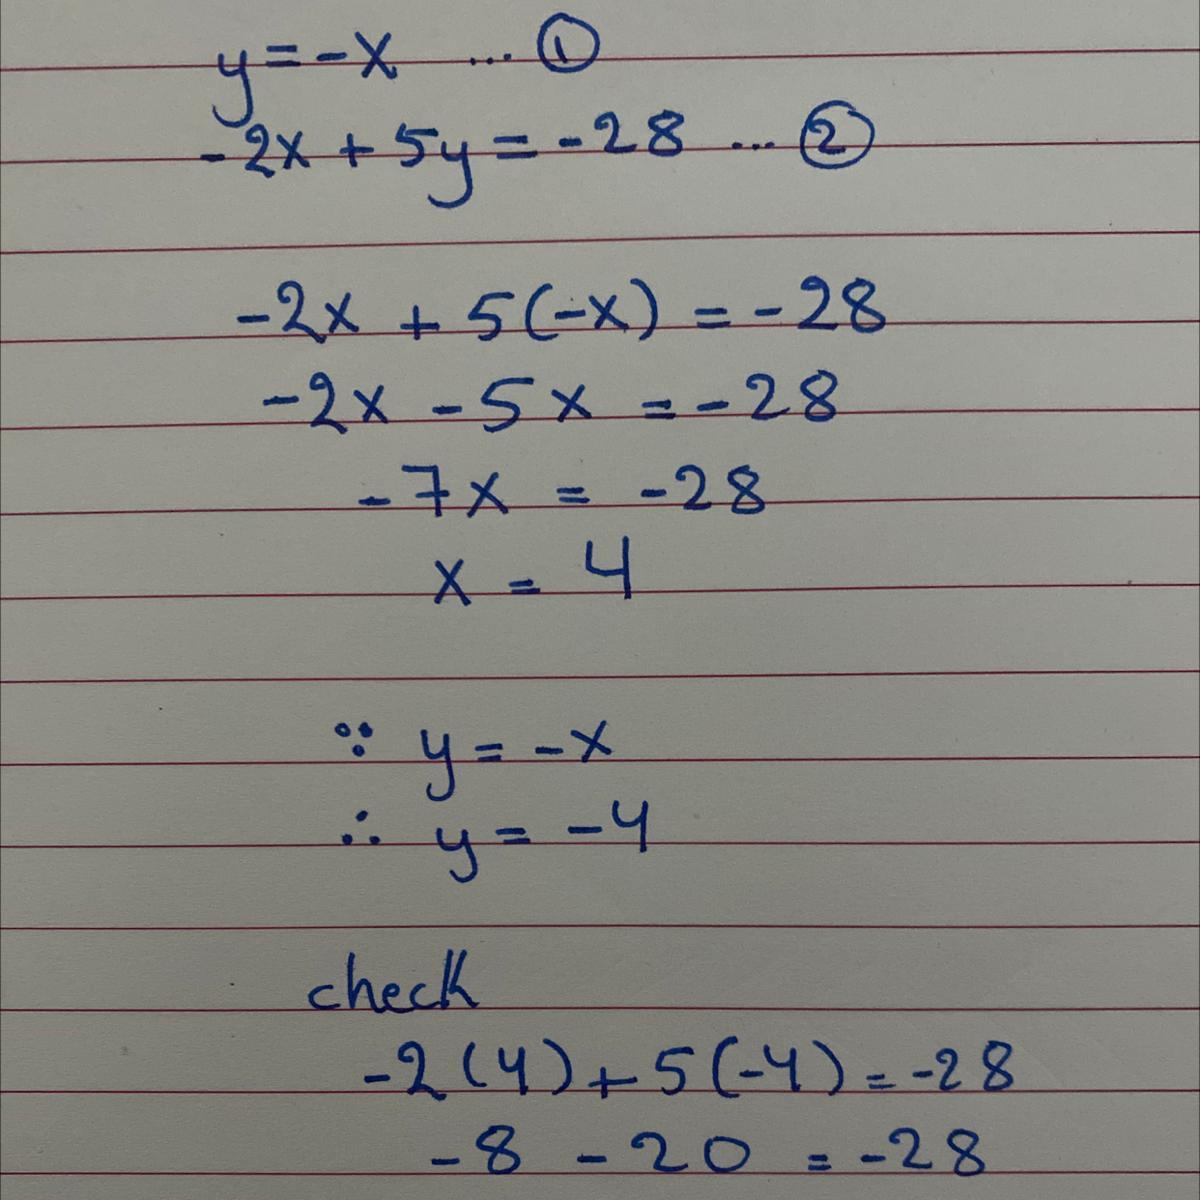 y = -x ... ①
-2x + 5y = -28 ... ②
-2x + 5(-x) = -28
-2x - 5x = -28
-7x = -28
x = 4
∵ y = -x
∴ y = -4
check
-2(4) + 5(-4) = -28
-8 - 20 = -28